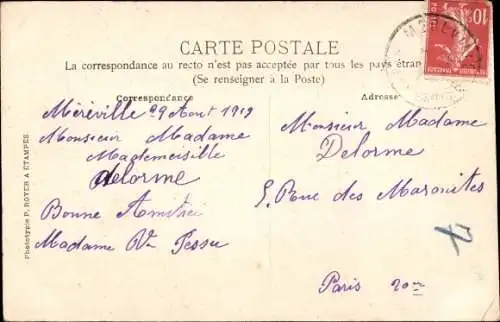 CARTE POSTALE
La correspondance au recto n'est pas acceptée par tous les pays étran
(Se renseigner à la Poste)
Correspondance
Méréville 29 Aout 1912
Monsieur Madame
Mademeisille
delorme
Bonne Amitiei
Madame Ve Pessu
Adresse
Monsieur Madame
Delorme
5. Rue des Maronites
Paris 20me
Phototypie P. ROYER A ÉTAMPES
10